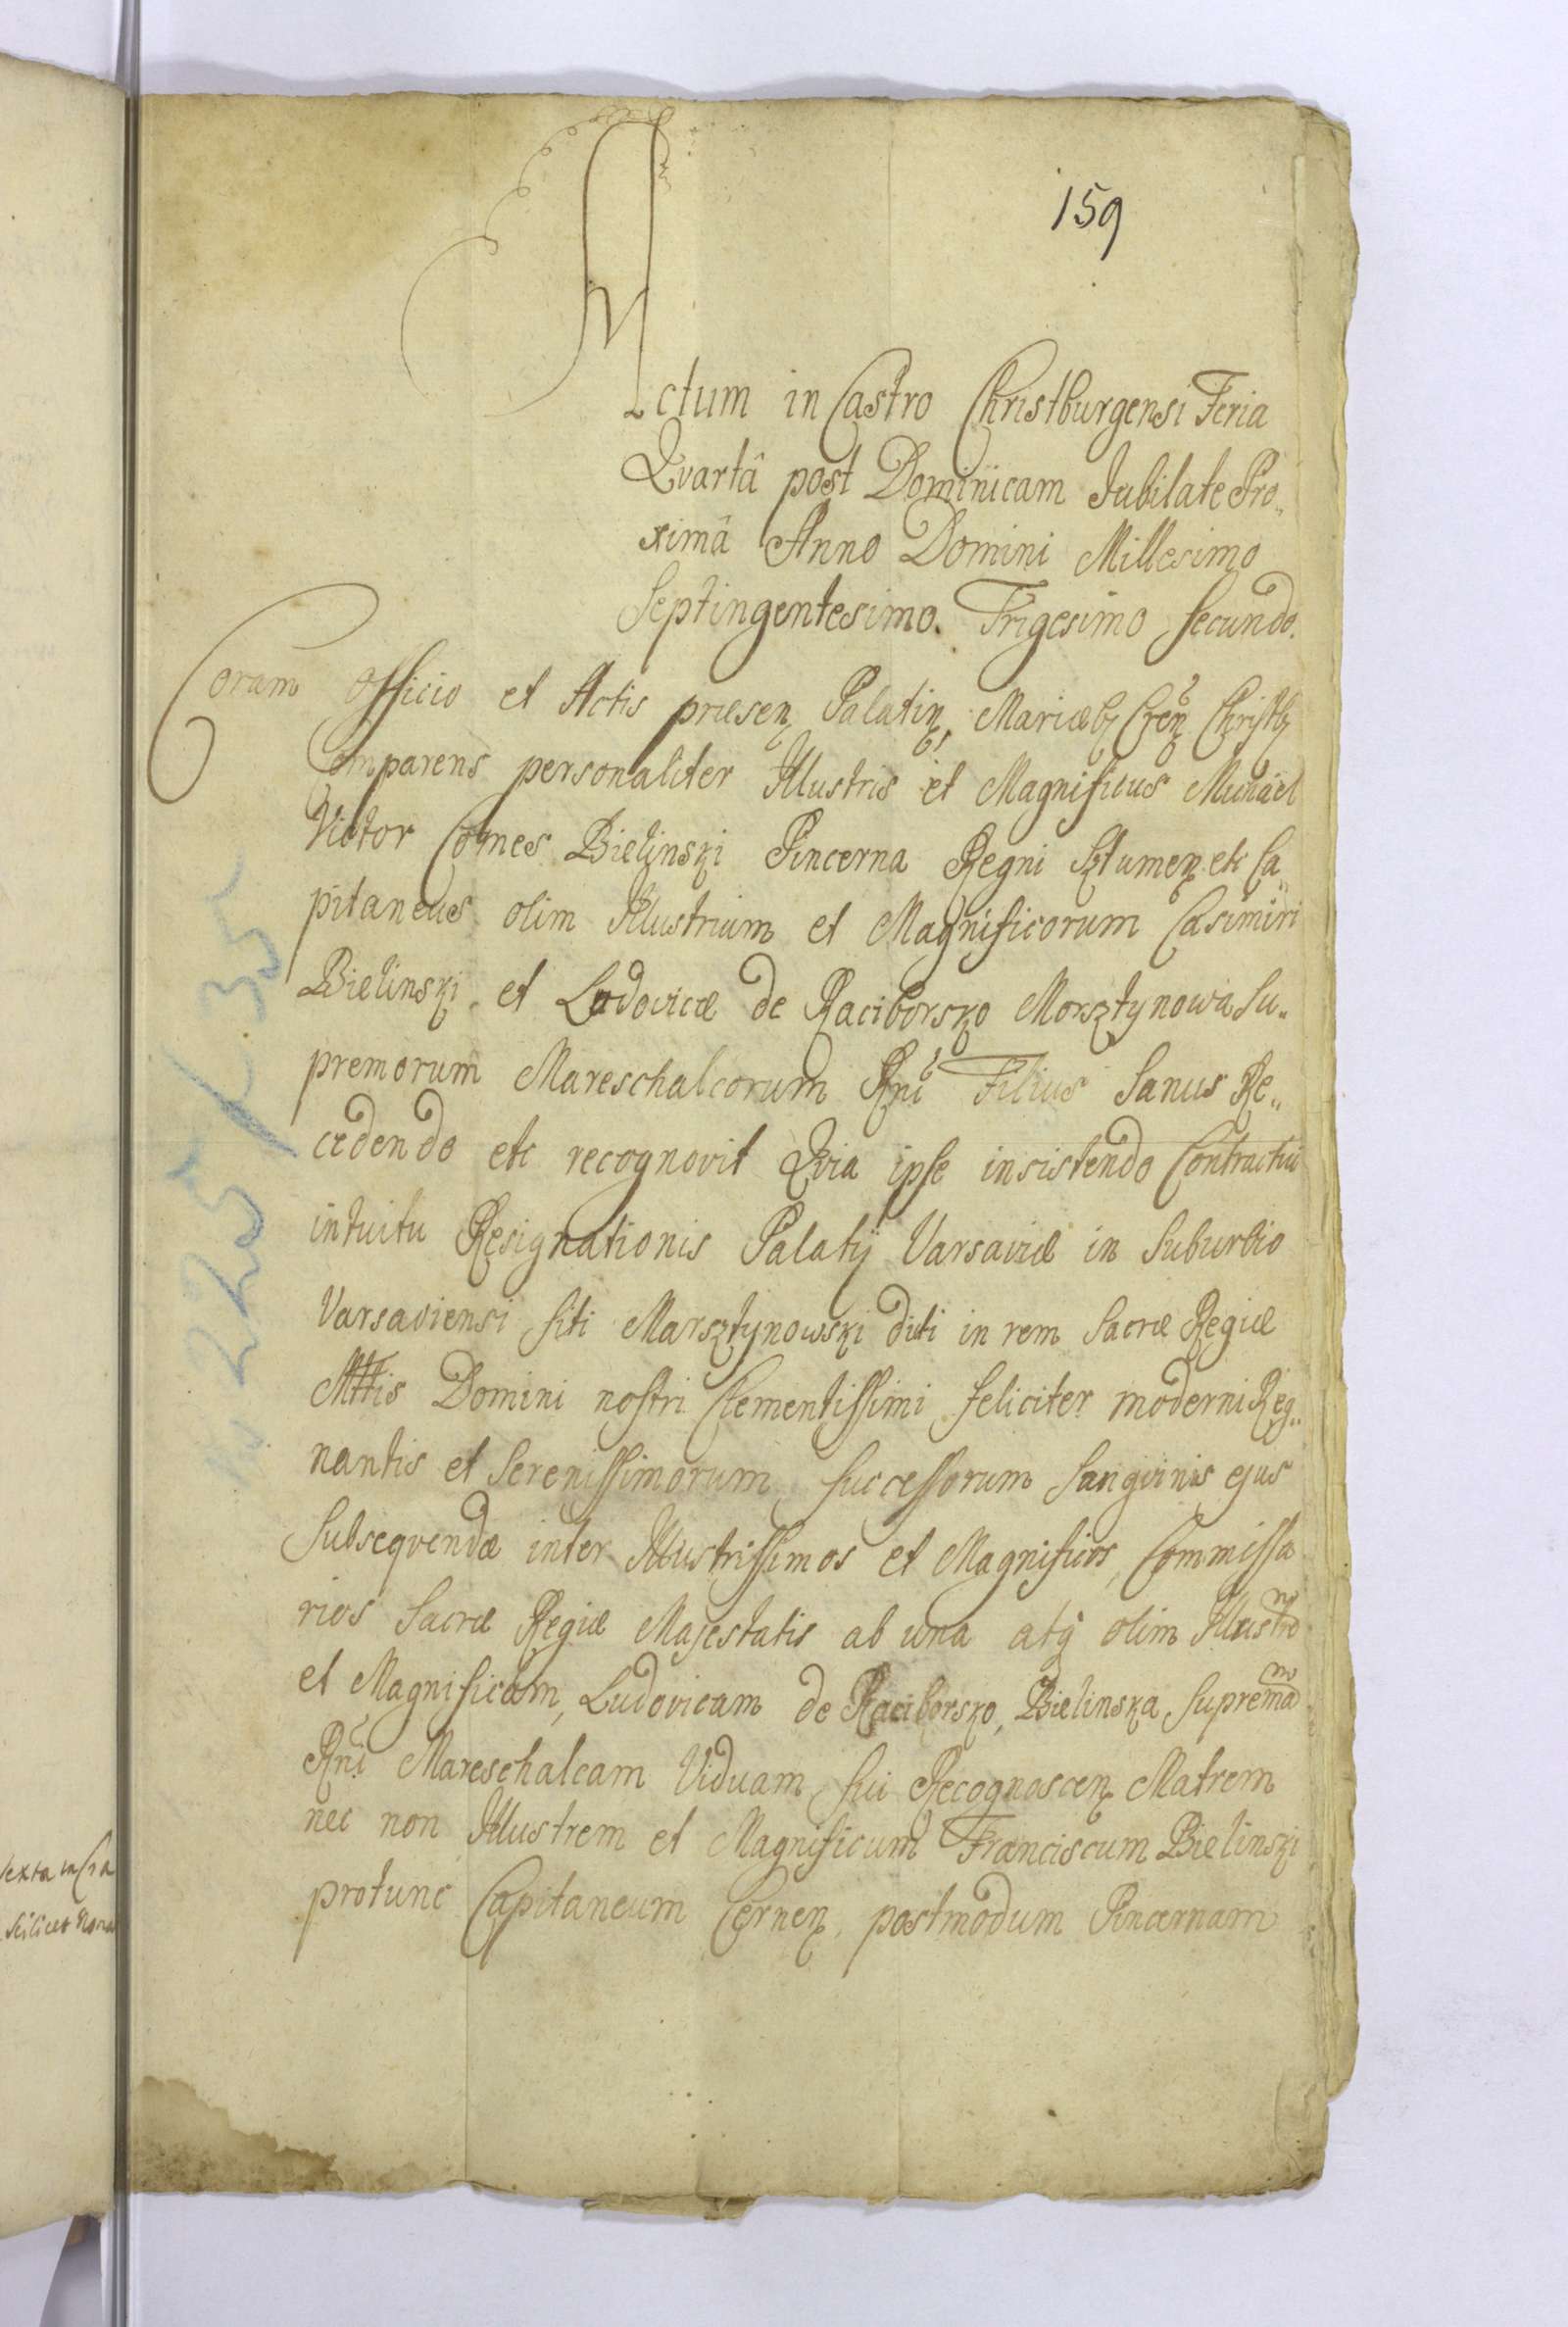 159
Actum in Castro Christburgensi Feria
Qvartâ post Dominicam Jubilate Pro„
ximâ Anno Domini Millesimo
Septingentesimo. Trigesimo Secundo.
Coram Officio et Actis præsen Palatin Mariæb Christb
Comparens personaliter Illustris et Magnificus Michael
Victor Comes Bielinski Pincerna Regni Sztumen etc Ca„
pitaneus olim Illustrium et Magnificorum Casimiri
Bielinski et Ludovicæ de Raciborsko Morsztynowa Su„
premorum Mareschalcorum Rni Filius Sanus Re„
cedendo etc recognovit Qvia ipse insistendo Contractui
intuitu Resignationis Palatij Varsaviæ in Suburbio
Varsaviensi siti Marsztynowski dicti in rem Sacræ Regiæ
Mttis Domini nostri Clementissimi feliciter moderni Reg„
nantis et Serenissimorum Successorum Sangvinis ejus
Subseqvendæ inter Illustrissimos et Magnificos, Commissa
rios Sacræ Regiæ Majestatis ab una atq olim Illustrem
et Magnificam, Ludovicam de Raciborsko, Bielinska Supremam
Rni Mareschalcam Viduam sui Recognoscen Matrem
nec non Illustrem et Magnificum Franciscum Bielinski
protunc Capitaneum Cernen, postmodum Pincernam